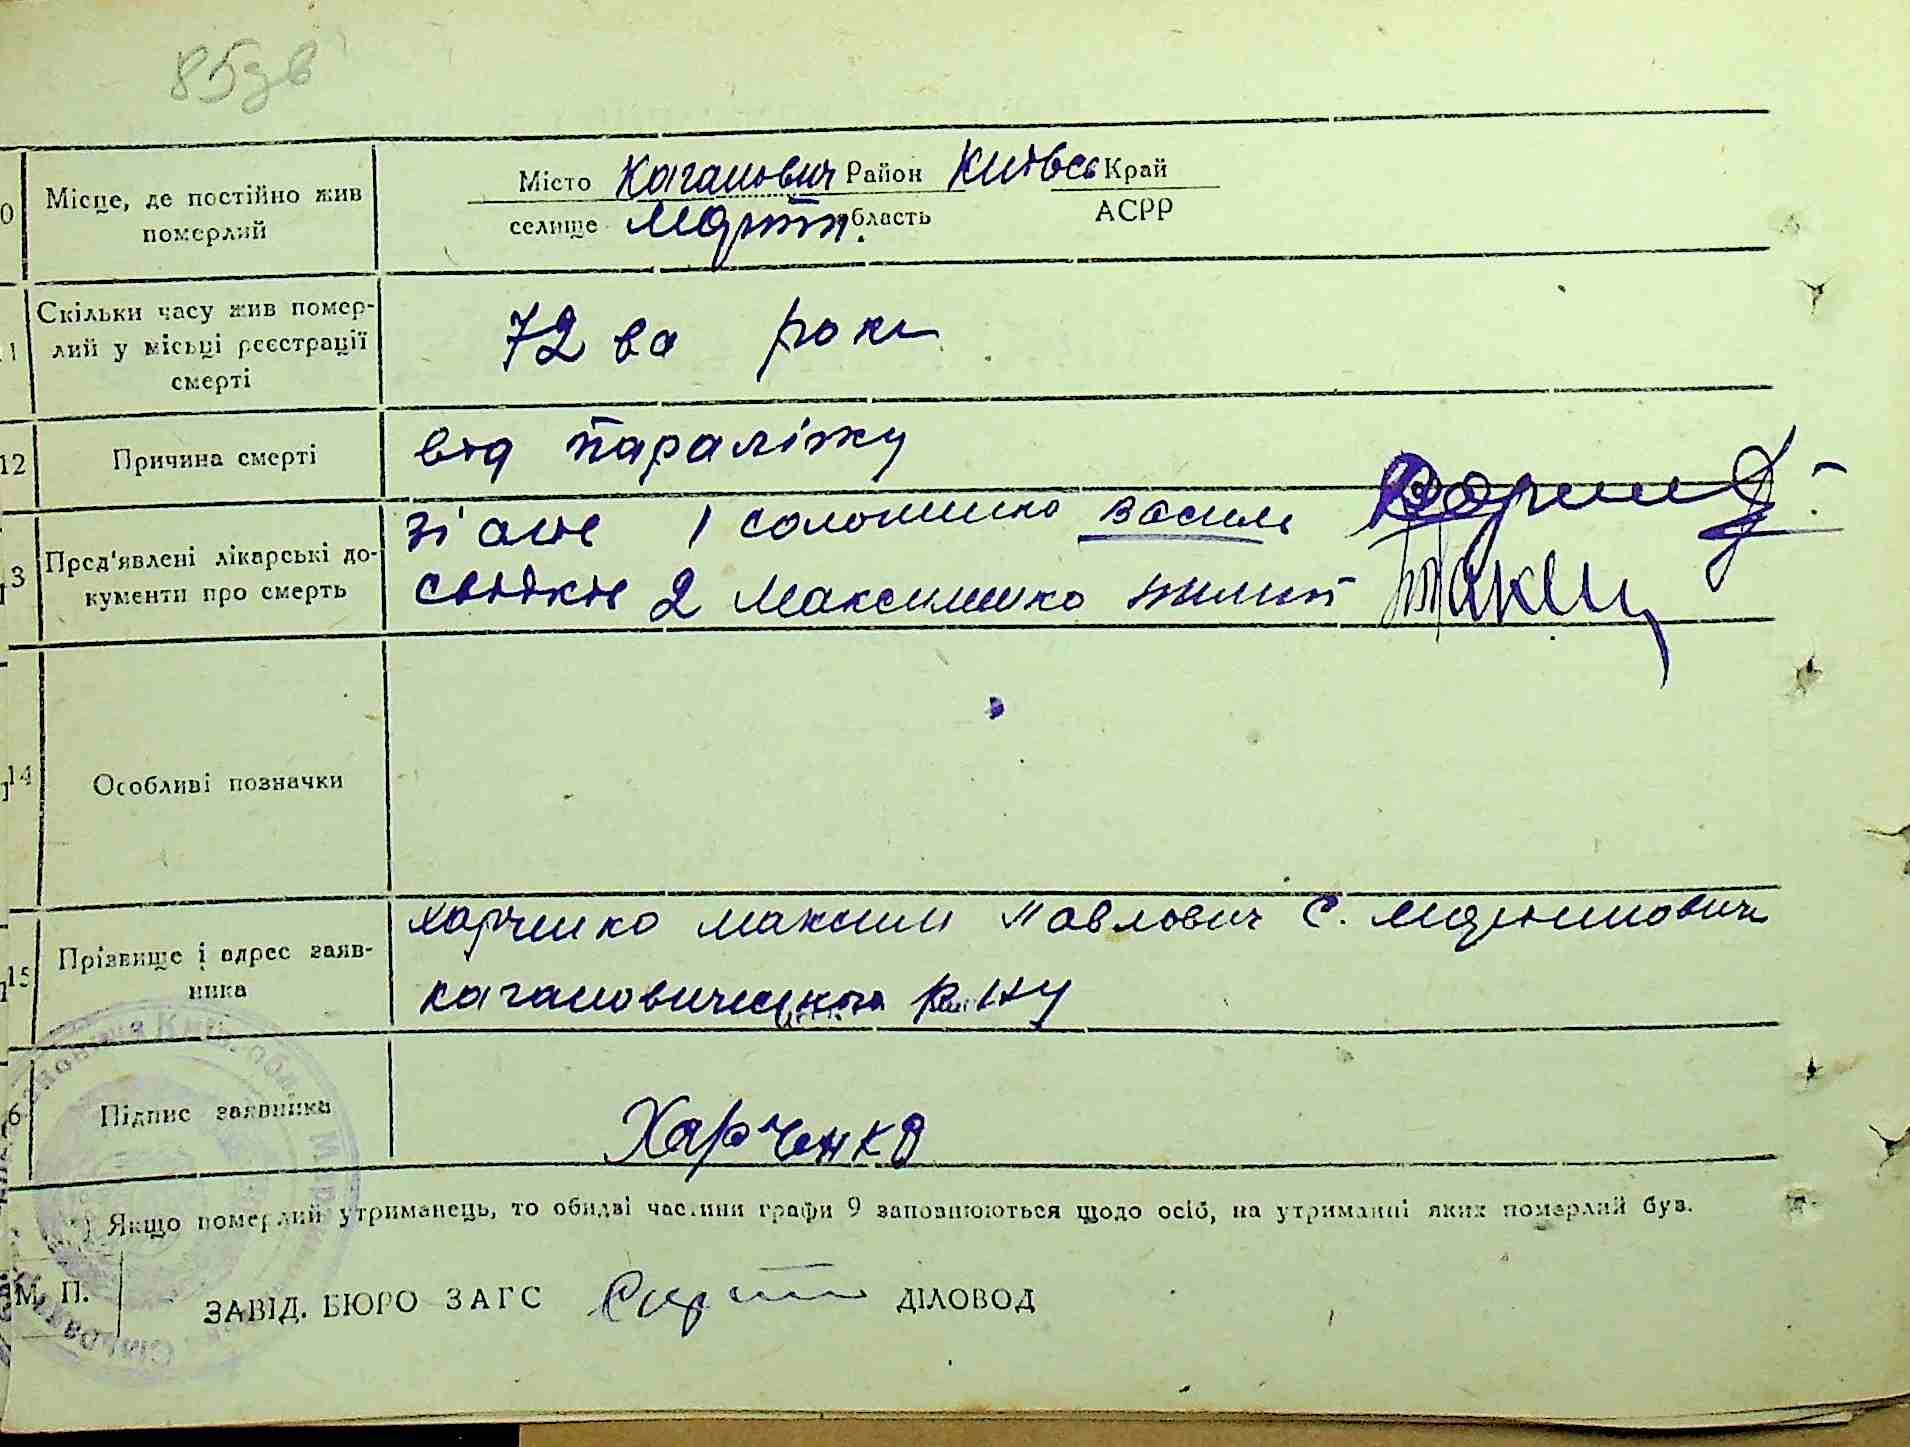 85зв
10 Місце, де постійно жив померлий
Місто Каганович Район Київсь Край
селище Март область АСРР
11 Скільки часу жив померлий у місьці реєстрації смерті
72 ва роки
12 Причина смерті
від паралічу
13 Пред'явлені лікарські документи про смерть
1 Соломинко Василь
свідків 2 Максименко
14 Особливі позначки
15 Прізвище і адрес заявника
Харченко Максим Павлович С. Мартинович
Кагановичиського р-ну
16 Підпис заявника
Харченко
*) Якщо померлий утриманець, то обидві частини графи 9 заповнюються щодо осіб, на утриманні яких померлий був.
М. П.
ЗАВІД. БЮРО ЗАГС ДІЛОВОД